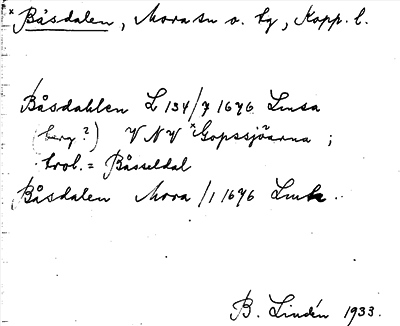 × Båsdalen, Mora sn o. tg, Kopp. l.
Båsdahlen L 134/7 1676 Lmsa
(berg?) V N V ×Gopssjöarna ;
trol. = Båsseldal
Båsdalen Mora/1 1676 Lmk.
B. Lindén 1933.